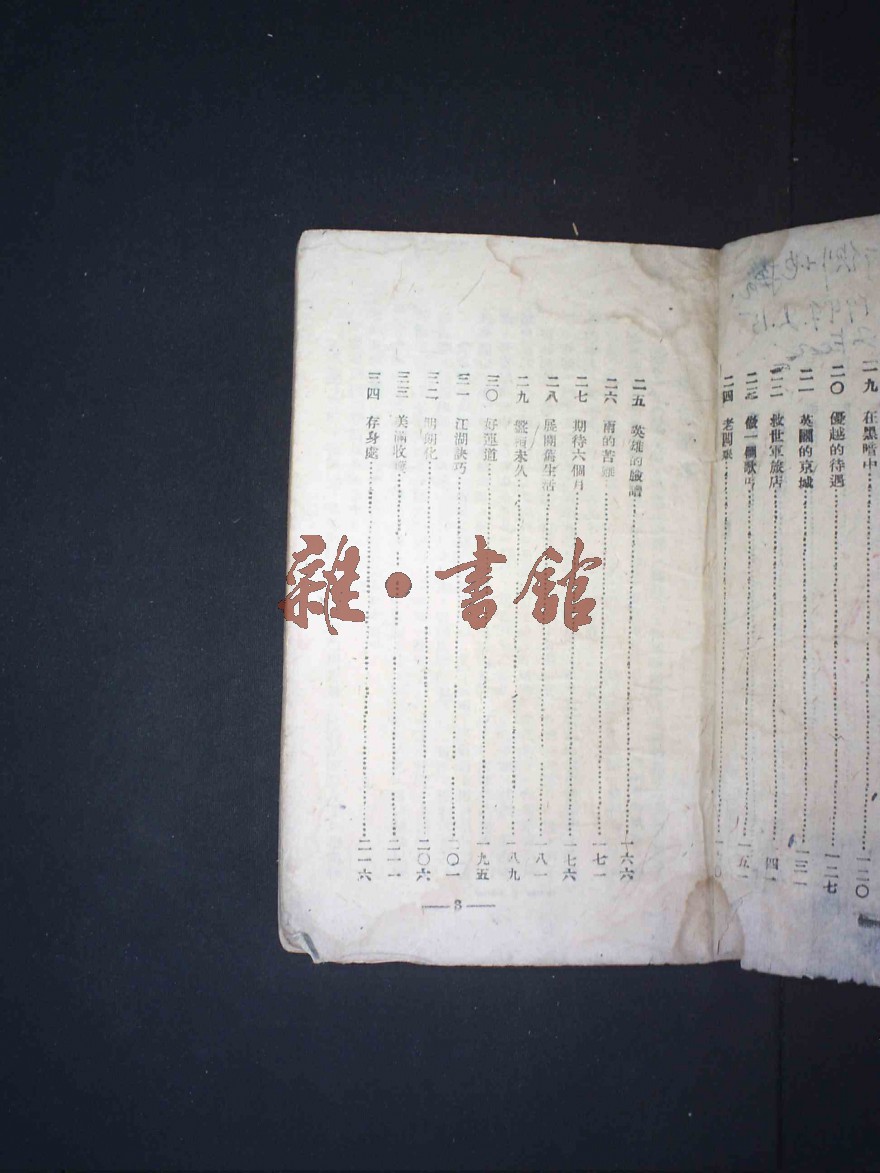 一九 在黑暗中 一二〇
二〇 優越的待遇 一二七
二一 英國的京城 一三一
二二 救世軍旅店 四一
二三 做一個歌 一五一
二四 老闆
二五 英雄的臉譜 一六六
二六 雨的苦 一七一
二七 期待六個月 一七六
二八 展開舊生活 一八一
二九 未久 一八九
三〇 好運道 一九五
三一 江湖訣巧 二〇一
三二 明朗化 二〇六
三三 美滿收 二一一
三四 存身處 二一六
3
雜·書館